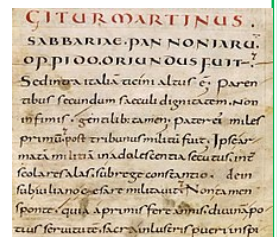 GITUR MARTINUS.
SABBARIAE·PANNONIARU̅
OPPIDO·ORIUNDUS FUIT·
Sed intra italiā ticini altus ē; Paren
tibus secundum saeculi dignitatem. Non
infimis, gentilib: tamen, Pater ei miles
primū, post tribunus militū fuit, Ipse ar
mata militiā in adolescentia secutus. int̄
scolares alas. sub rege constantio. dein
sub iuliano caesare militavit; Non tamen
sponte, quia a primis fere annis. divinā po
tius servitutē. sacra inlustris pueri inspi